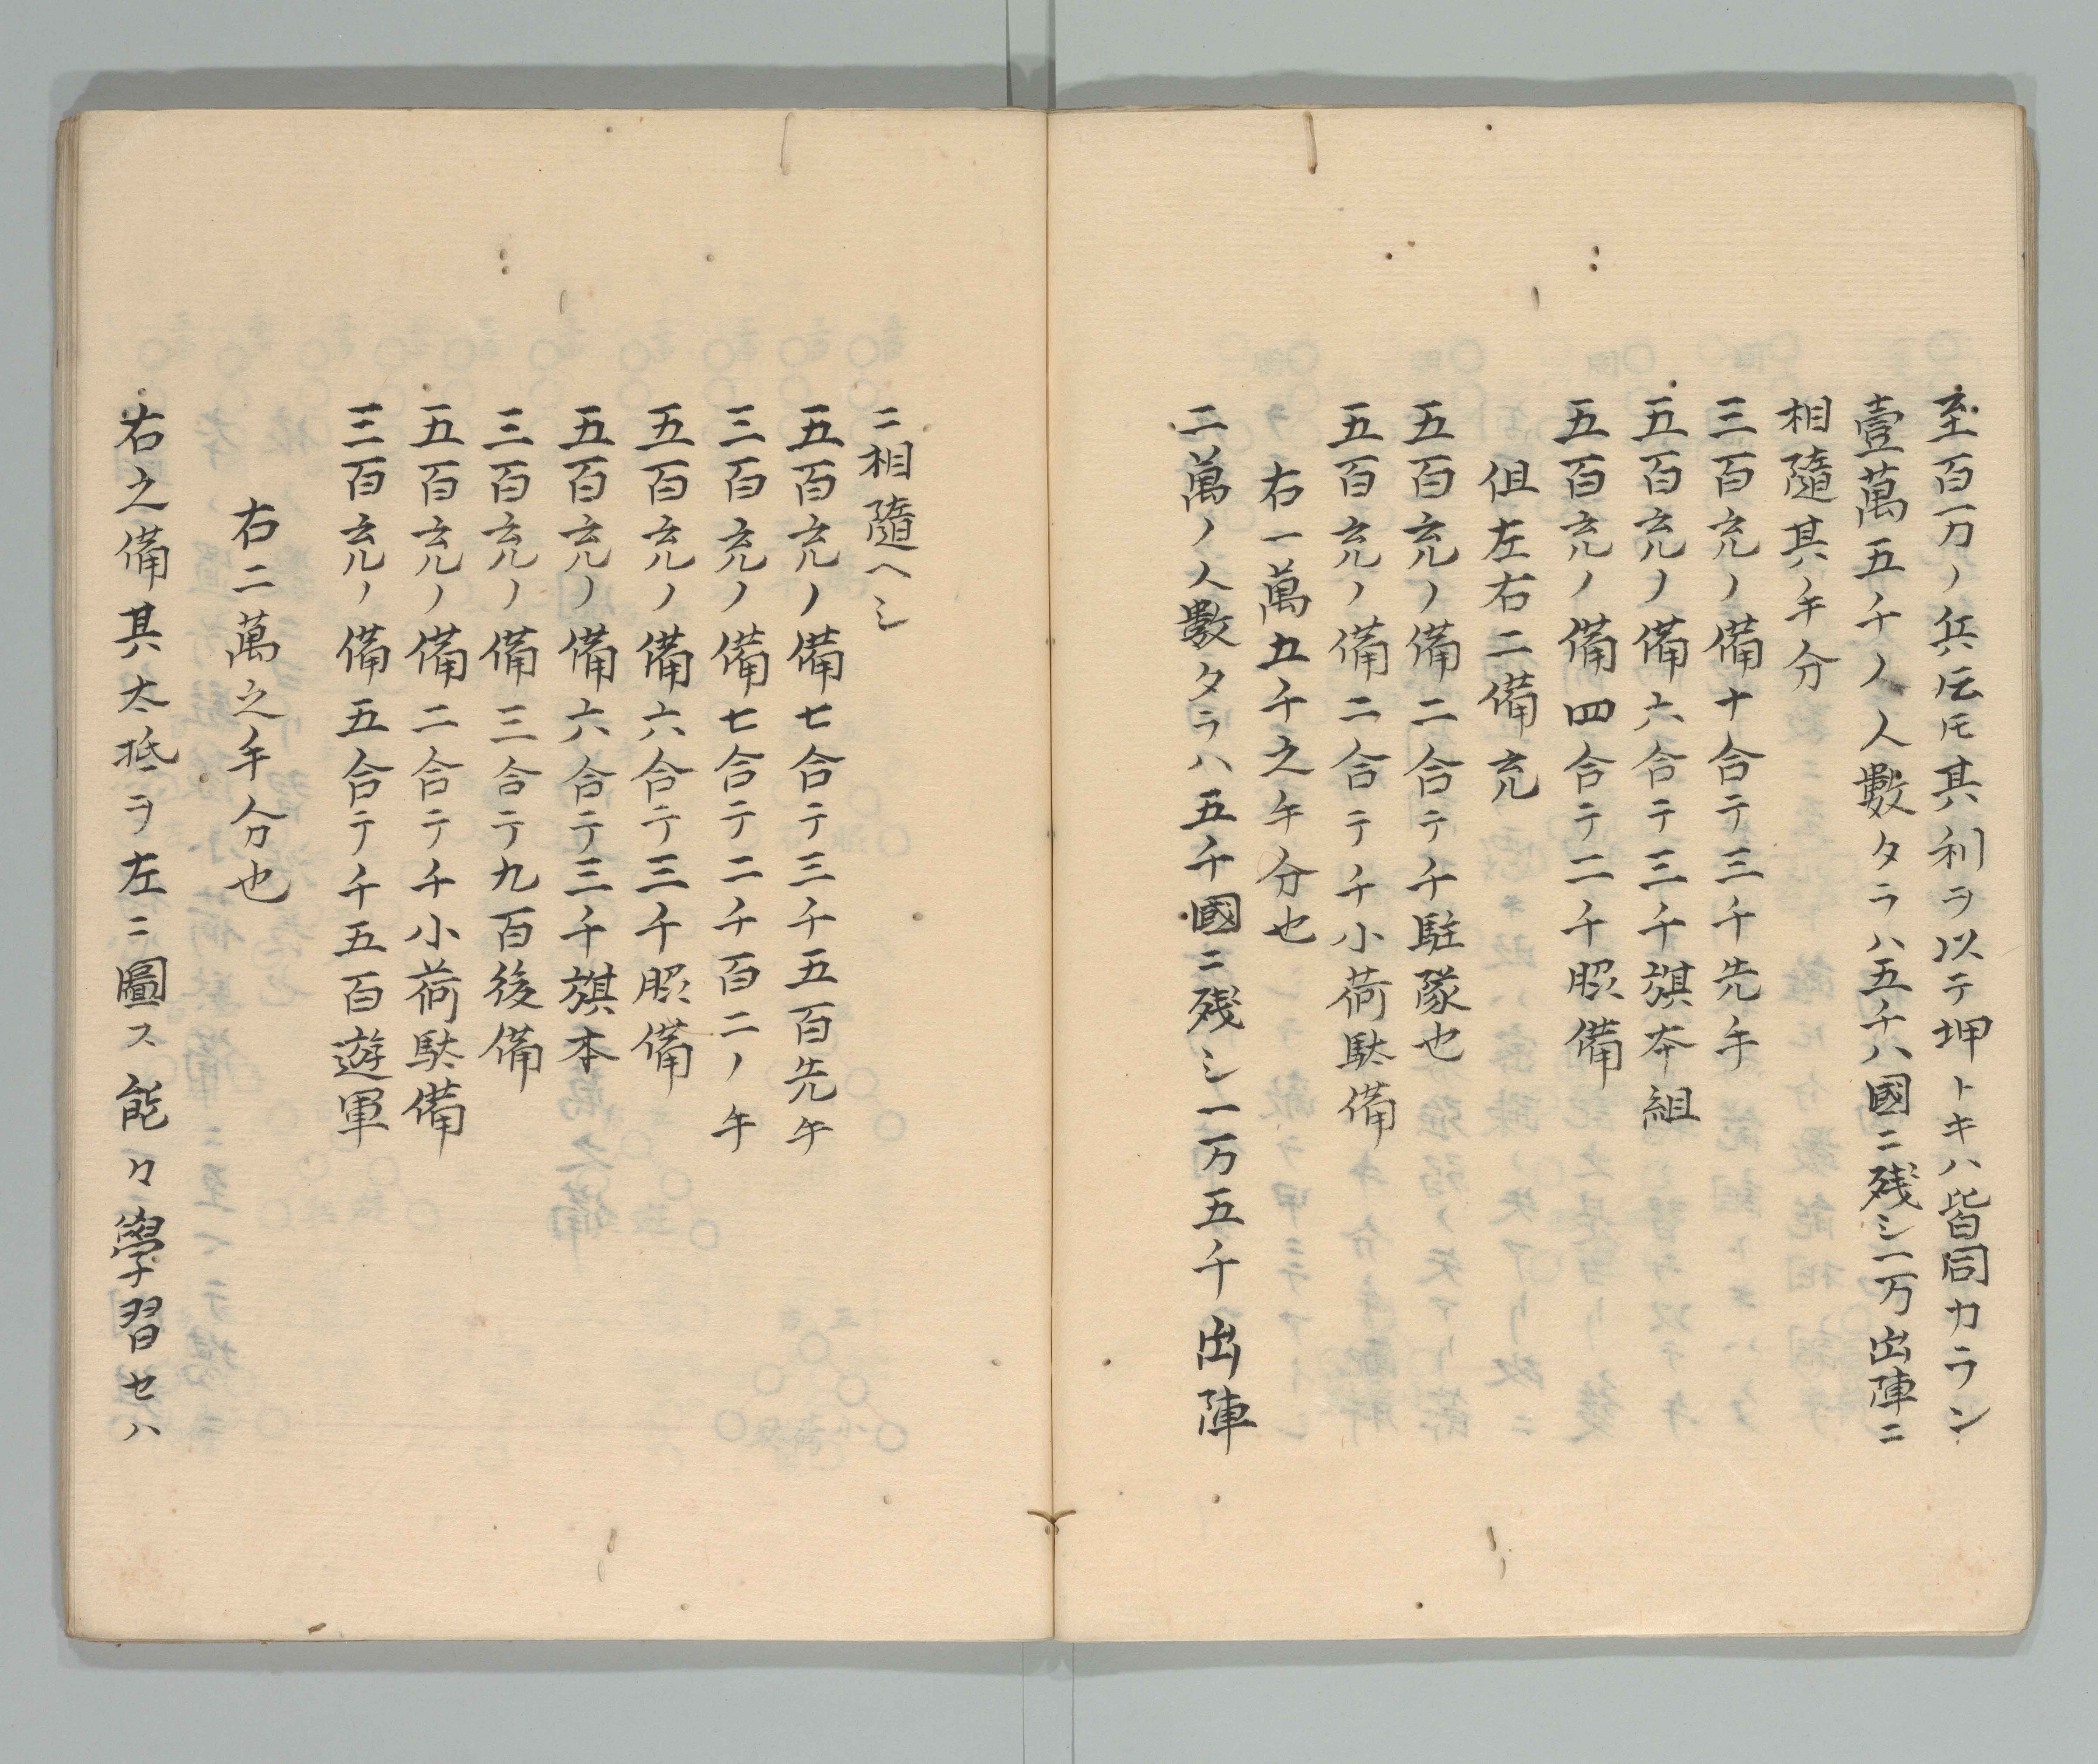 至百万ノ兵𪜈其利ヲ以テ押トキハ皆同カラン
壹萬五千ノ人數タラハ五千ハ國ニ残シ一万出陣ニ
相隨其ノ手分
三百充ノ備十合テ三千先手
五百充ノ備六合テ三千旗本組
五百充ノ備四合テ二千脇備
但左右二備充
五百充ノ備二合テ千駐隊也
五百充ノ備二合テ千小荷駄備
右一萬五千之手分也
二萬ノ人數タラハ五千國ニ残シ一万五千出陣
ニ相隨ヘシ
五百充ノ備七合テ三千五百先手
三百充ノ備七合テ二千百二ノ手
五百充ノ備六合テ三千脇備
五百充ノ備六合テ三千旗本
三百充ノ備三合テ九百後備
五百充ノ備二合テ千小荷駄備
三百充ノ備五合テ千五百遊軍
右二萬之手分也
右之備其大抵ヲ左ニ圖ス能々學習セハ